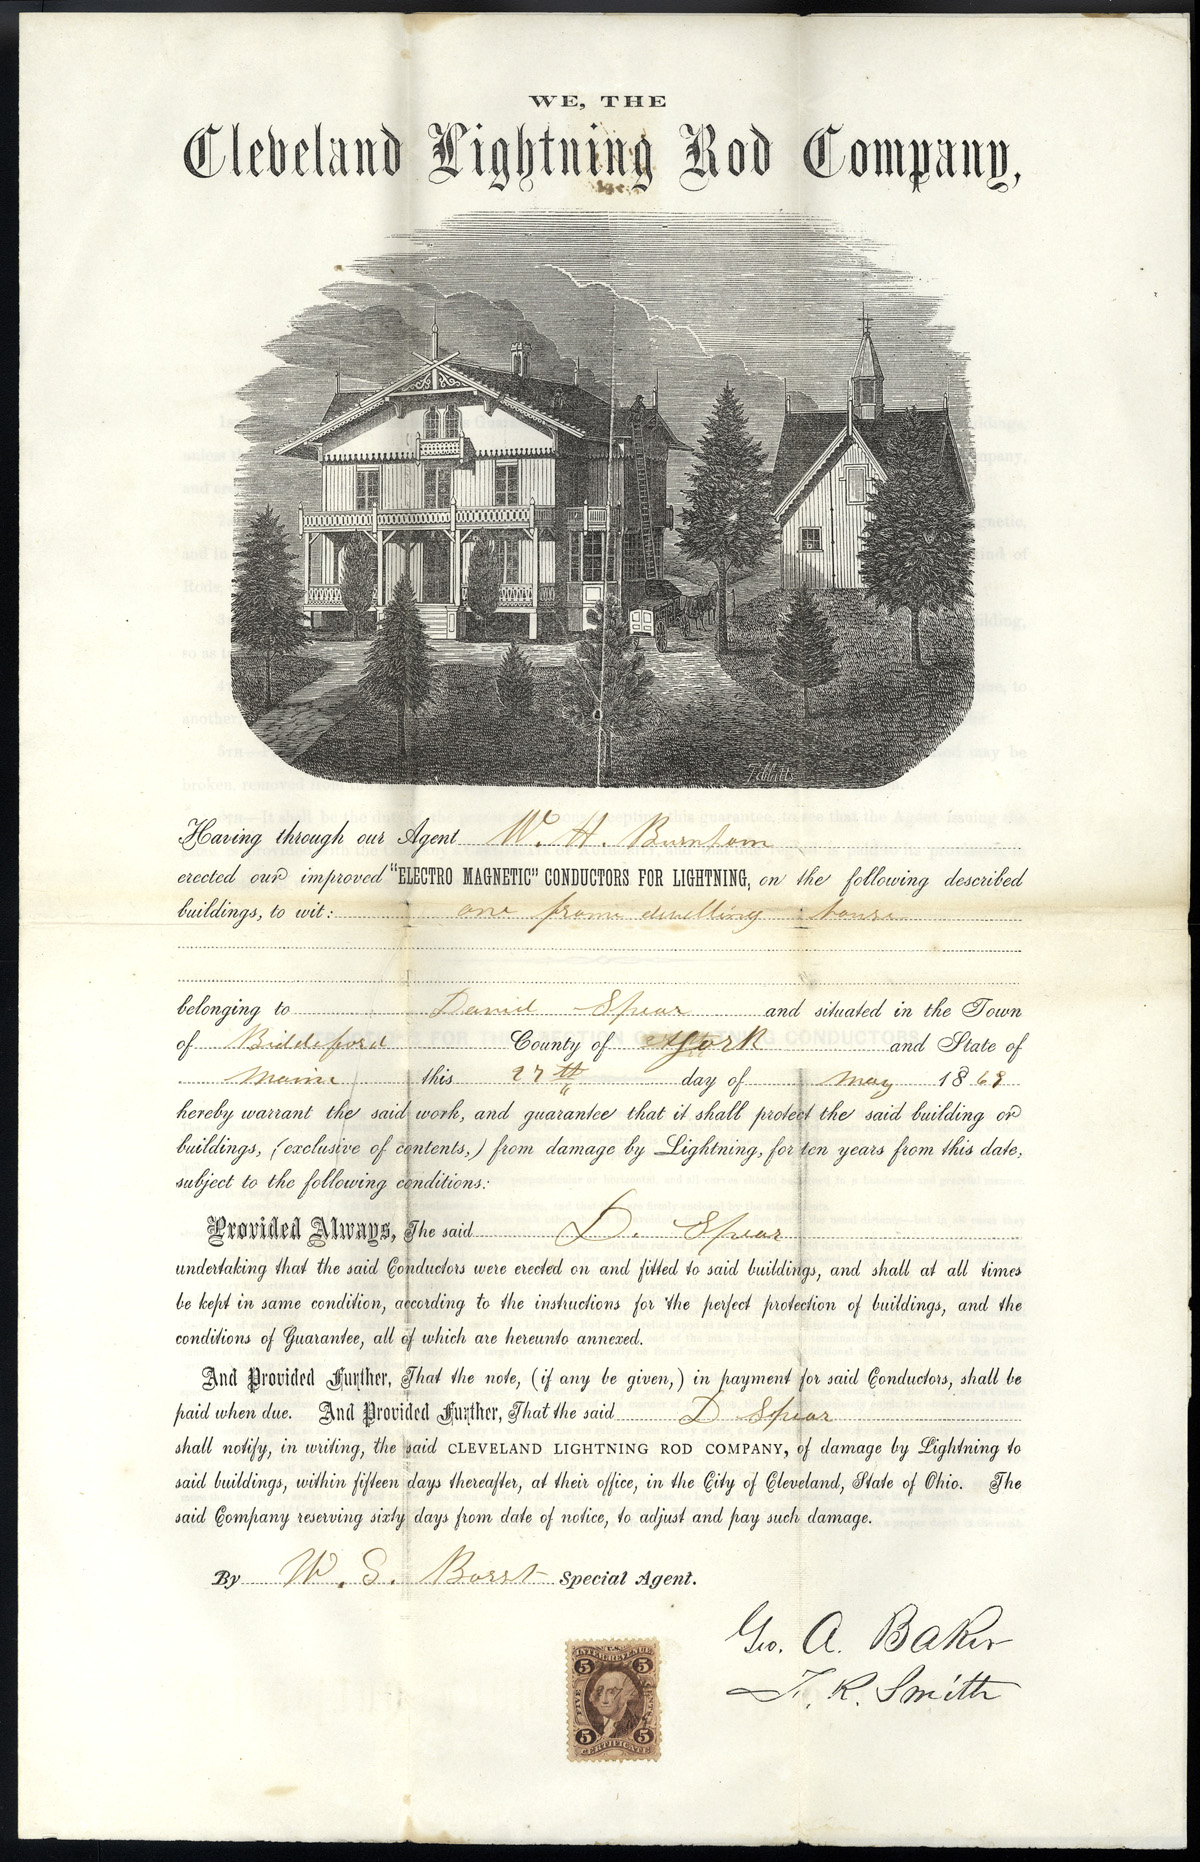 WE, THE
Cleveland Lightning Rod Company,
Having through our Agent W. H. Burnham
erected our improved "ELECTRO MAGNETIC" CONDUCTORS FOR LIGHTNING, on the following described
buildings, to wit: one frame dwelling house
belonging to Daniel Spear and situated in the Town
of Biddeford County of York and State of
Maine this 27th day of May 1869
hereby warrant the said work, and guarantee that it shall protect the said building or
buildings, (exclusive of contents,) from damage by Lightning, for ten years from this date,
subject to the following conditions:
Provided Always, The said D. Spear
undertaking that the said Conductors were erected on and fitted to said buildings, and shall at all times
be kept in same condition, according to the instructions for the perfect protection of buildings, and the
conditions of Guarantee, all of which are hereunto annexed.
And Provided Further, That the note, (if any be given,) in payment for said Conductors, shall be
paid when due. And Provided Further, That the said D Spear
shall notify, in writing, the said CLEVELAND LIGHTNING ROD COMPANY, of damage by Lightning to
said buildings, within fifteen days thereafter, at their office, in the City of Cleveland, State of Ohio. The
said Company reserving sixty days from date of notice, to adjust and pay such damage.
By W. S. Special Agent.
Geo. A. Baker
T. R. Smith
U.S.
INTER. REVENUE
5 5
FIVE CENTS
5 5
CERTIFICATE